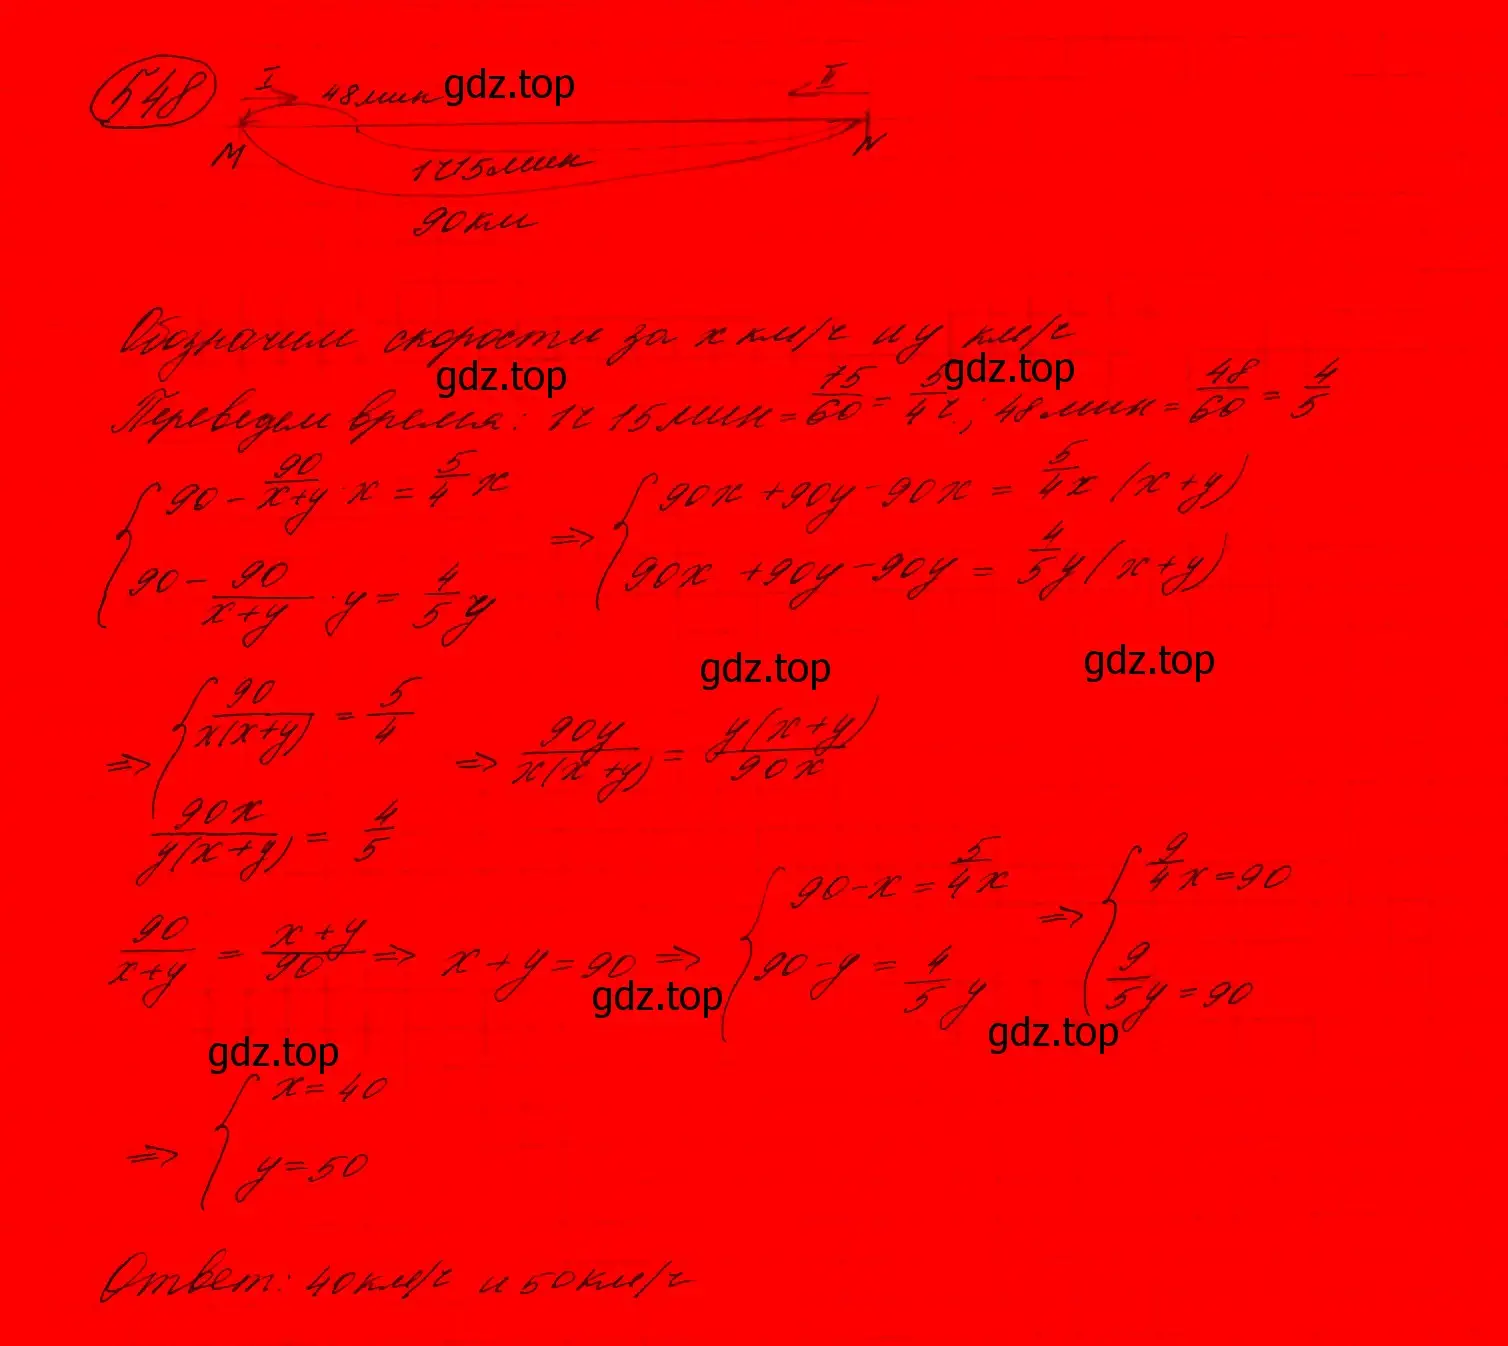 548 I 48 мин gdz.top II
M N
1ч15мин
90 км
Обозначим скорости за x км/ч и y км/ч
gdz.top gdz.top
Переведем время: 1ч 15 мин = 75/60 = 5/4 ч.; 48 мин = 48/60 = 4/5
{ 90 - 90/(x+y) · x = 5/4 x ⇒ { 90x + 90y - 90x = 5/4 x (x+y)
90 - 90/(x+y) · y = 4/5 y 90x + 90y - 90y = 4/5 y (x+y)
gdz.top gdz.top
⇒ { 90/(x(x+y)) = 5/4 ⇒ 90y/(x(x+y)) = y(x+y)/(90x)
90x/(y(x+y)) = 4/5
90/(x+y) = (x+y)/90 ⇒ x+y=90 ⇒ { 90-x = 5/4 x ⇒ { 9/4 x = 90
90-y = 4/5 y 9/5 y = 90
gdz.top gdz.top
gdz.top
⇒ { x = 40
y = 50
Ответ: 40 км/ч и 50 км/ч